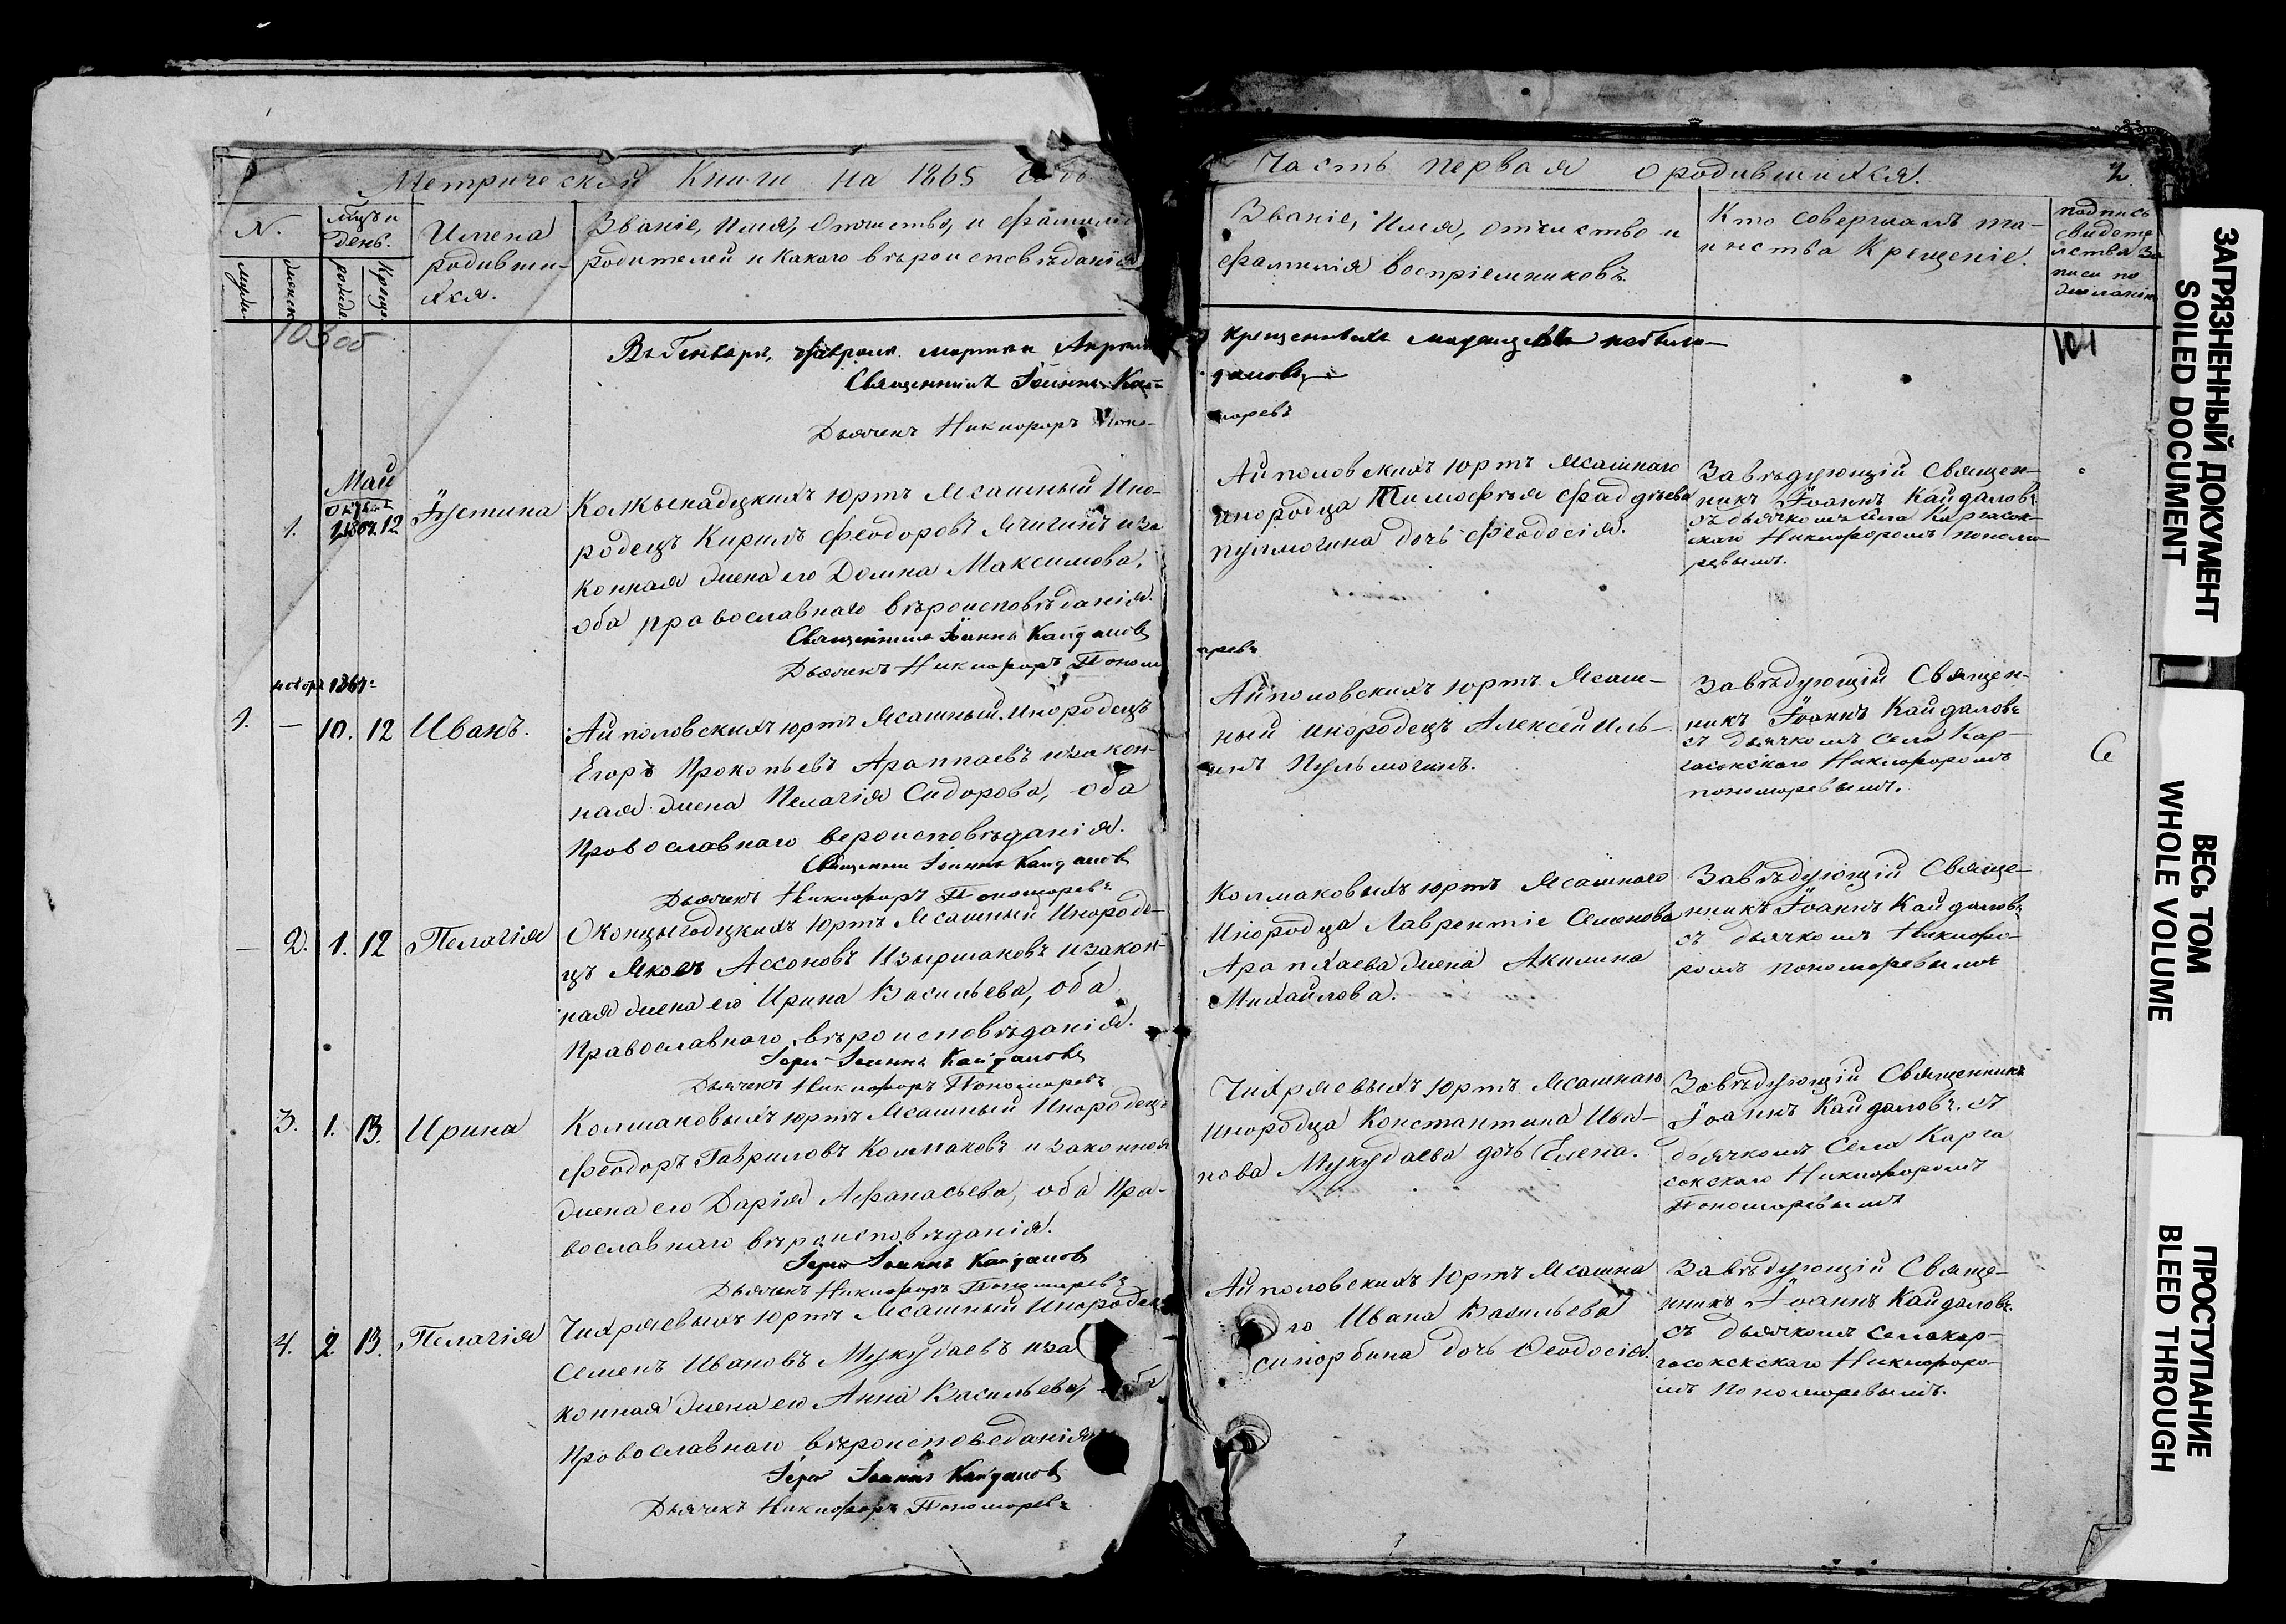 Метрической Книги на 1865 годъ
Часть первая о родившихся.
2.
N.
мѣсяцъ и день.
Имена родивши-
хся.
Званіе, Имя, Отчество, и фамилія
родителей и какого вѣроисповѣданія
муж.
женск.
рожд.
Крещ.
Званіе, Имя, отчество и
фамилія воспріемниковъ.
Кто совершалъ та-
инства Крещеніе.
подпись
свидете
лства за
писи по
желанію
103об
104
Въ Генваря, Февраля, мартѣ и Апрѣлѣ
крещенныхъ младенцевъ небыло
Священникъ Іоаннъ Кай-
даловъ
Дьячекъ Никифоръ Поно-
моревъ
Май
1.
12
Іустина
Колкынадцкихъ юртъ Ясашный Ино-
родецъ Кирилъ Феодоровъ и за
конная жена его Домна Максимова,
оба православнаго вѣроисповѣданія.
Священникъ Іоаннъ Кайдаловъ
Дьячекъ Никифоръ Поном
аревъ
Айполовскихъ юртъ Ясашнаго
инородца Тимофея Фадѣева
дочь Феодосія.
Завѣдующій Священ-
никъ Іоаннъ Кайдаловъ
съ дьячкомъ села Каргасок-
скаго Никифоромъ Понома-
ревымъ.
1. — 10. 12 Иванъ.
Айполовскихъ юртъ Ясашный Инородецъ
Егоръ Прокопьевъ Араппаевъ и закон-
ная жена Пелагія Сидорова, оба
Провославнаго вероисповѣданія.
Священни Іоаннъ Кайдалов
Дьячекъ Никифоръ Пономоревъ
Айполовскихъ юртъ Ясаш-
ный инородецъ Алексей Иль-
инъ Пульмогинъ.
Завѣдующій Священ-
никъ Іоаннъ Кайдаловъ
съ дьячкомъ села Кар-
гасокскаго Никифоромъ
пономоревымъ.
— 2. 1. 12 Пелагія
Юртъ Ясашный Инороде-
цъ Яковъ Ассоновъ Изыршаковъ и закон-
ная жена его Ирина Васильева, оба
Православнаго вѣроисповѣданія.
Іерей Іоаннъ Кайдаловъ
Дьячекъ Никифоръ Пономоревъ
Колмаковыхъ юртъ Ясашнаго
Инородца Лаврентіе Семенова
Арапхаева жена Акилина
Михайлова.
Завѣдующій Свяще-
нникъ Іоаннъ Кайдаловъ
съ дьячкомъ Никифо-
ромъ Пономоревымъ
3. 1. 13. Ирина
Колмаковыхъ юртъ Ясашный Инородецъ
Феодоръ Гавриловъ Колмаковъ и законная
жена его Дарія Афанасьева, оба Пра-
вославнаго вѣроисповѣданія.
Іерей Іоаннъ Кайдаловъ
Дьячекъ Никифоръ Пономоревъ
Чихряевыхъ юртъ Ясашнаго
инородца Константина Ива-
нова Мукудаева дочь Елена.
Завѣдующій Священникъ
Іоаннъ Кайдаловъ. съ
дьячкомъ Села Карга
сокскаго Никифоромъ
Пономоревымъ
4. 2 13. Пелагія
Чихряевыхъ юртъ Ясашный Инородец
Семенъ Ивановъ Мукудаевъ и за
конная жена его Анна Васильева, оба
Провославнаго вѣроисповеданія
Іерей Іоаннъ Кайдаловъ
Дьячекъ Никифоръ Пономоревъ
Айполовскихъ Юртъ Ясашна
го Ивана Васильева
Синорбина дочь Феодосія.
Завѣдующій Свяще-
нникъ Іоаннъ Кайдаловъ.
съ дьячкомъ села кар-
гасокскскаго Никифоро-
мъ Пономоревымъ.
ЗАГРЯЗНЕННЫЙ ДОКУМЕНТ
SOILED DOCUMENT
ВЕСЬ ТОМ
WHOLE VOLUME
ПРОСТУПАНИЕ
BLEED THROUGH